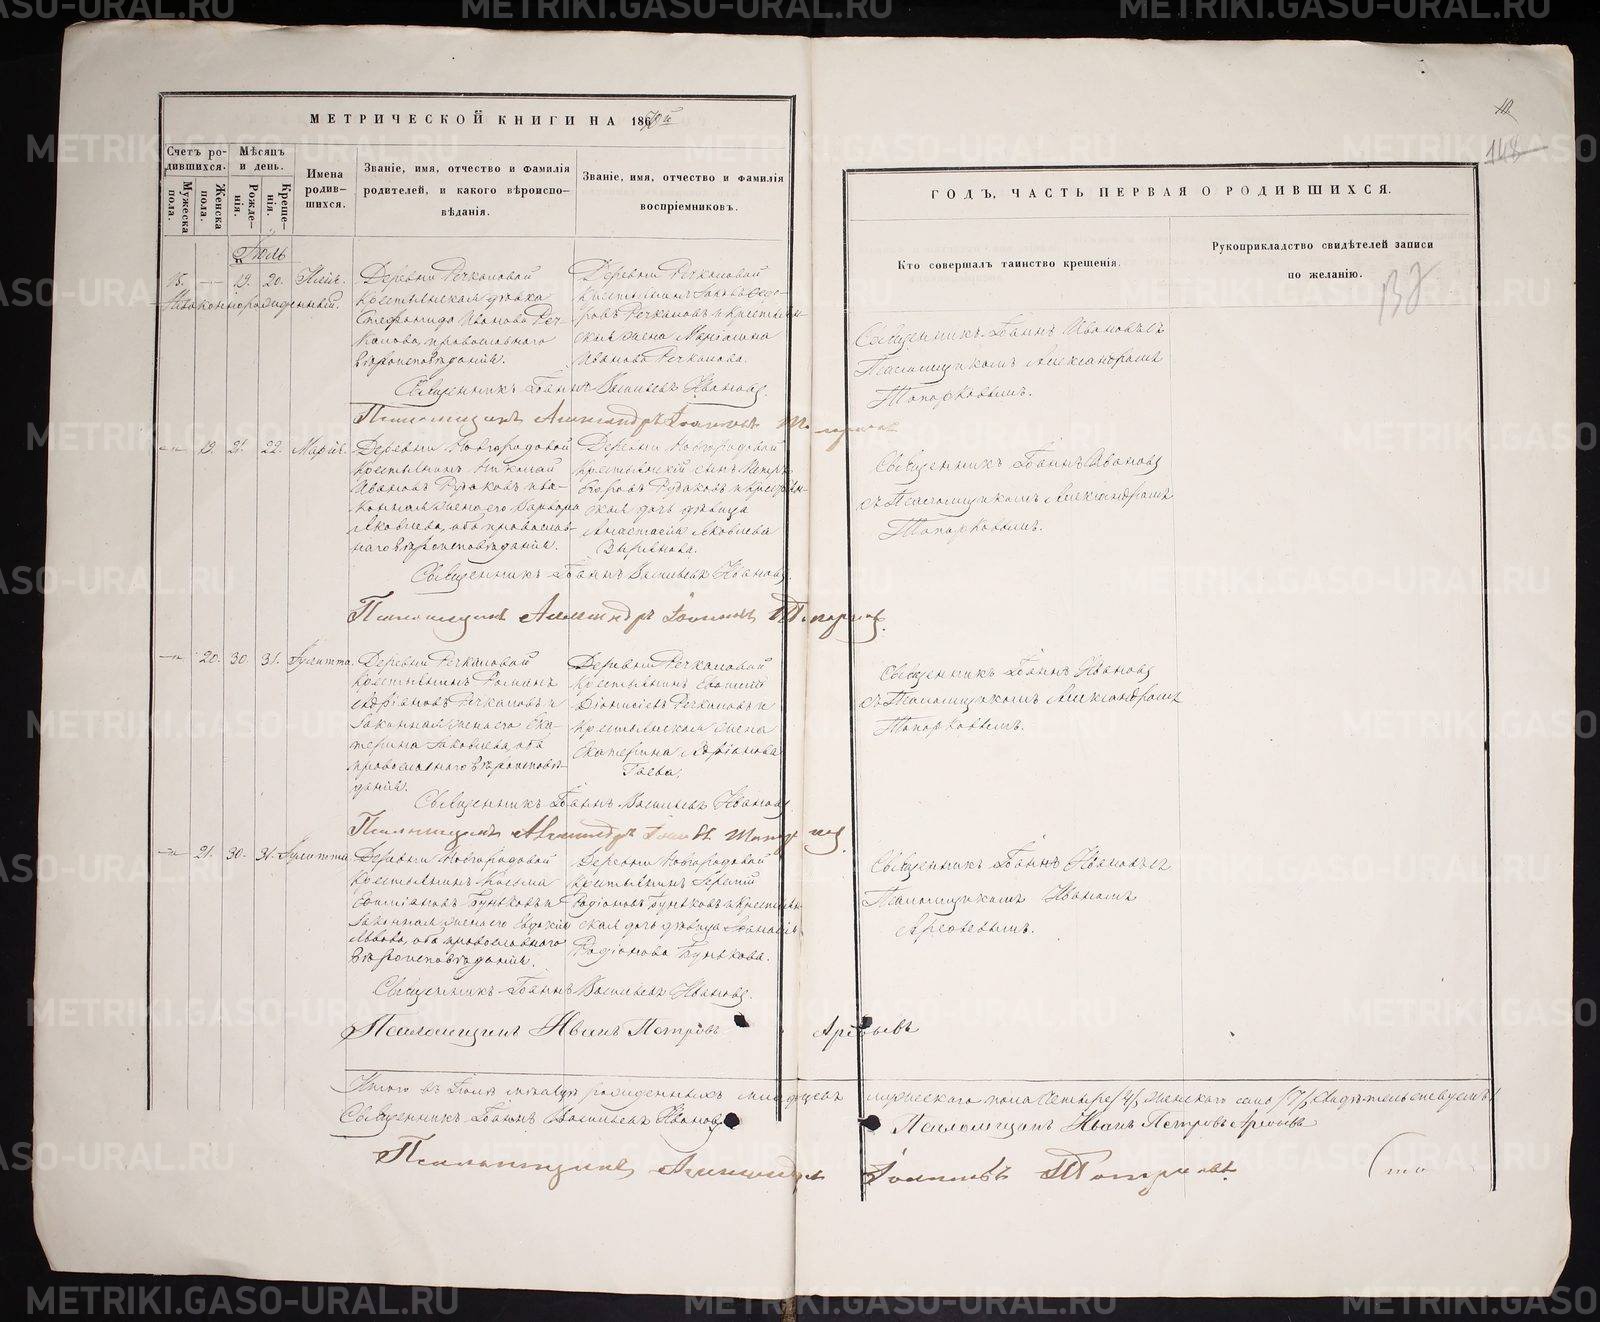 МЕТРИЧЕСКОЙ КНИГИ НА 1870й
Счетъ ро-
дившихся.
Мѣсяцъ
и день.
Мужеска
пола.
Женска
пола.
Рожде-
нія.
Креще-
нія.
Имена
родив-
шихся.
Званіе, имя, отчество и фамилія
родителей, и какого вѣроиспо-
вѣданія.
Званіе, имя, отчество и фамилія
воспріемниковъ.
ГОДЪ, ЧАСТЬ ПЕРВАЯ О РОДИВШИХСЯ.
Кто совершалъ таинство крещенія.
Рукоприкладство свидѣтелей записи
по желанію.
148
Іюль
15. — 19. 20. Илія.
Незаконнорожденный.
Деревни Речкаловой
Крестьянская дѣвка
Стефанида Иванова Реч-
калова, православнаго
вѣроисповѣданія.
Деревни Речкаловой
Крестьянинъ Іаковъ Ѳедо-
ровъ Речкаловъ и Крестьян-
ская жена Маріамна
Иванова Речкалова.
Священникъ Іоаннъ Ивановъ съ
Псаломщикомъ Александромъ
Топорковымъ.
Священникъ Іоаннъ Васильевъ Ивановъ
Псаломщикъ Александръ Іоанновъ Топорковъ
19. 21. 22. Марія.
Деревни Новгородовой
Крестьянинъ Николай
Ивановъ Рудаковъ и за-
конная жена его Варвара
Яковлева, оба православ-
наго вѣроисповѣданія.
Деревни Новгородовой
Крестьянскій сынъ Петръ
Егоровъ Рудаковъ и Крестьян-
ская дочь дѣвица
Анастасія Яковлева
Священникъ Іоаннъ Ивановъ
съ Псаломщикомъ Александромъ
Топорковымъ.
Священникъ Іоаннъ Васильевъ Ивановъ.
Псаломщикъ Александръ Іоанновъ Топорковъ.
20. 30. 31. Іулитта.
Деревни Речкаловой
Крестьянинъ Романъ
Андріановъ Речкаловъ и
законная жена его Ека-
терина Іаковлева, оба
православнаго вѣроисповѣ-
данія.
Деревни Речкаловой
Крестьянинъ Евѳимій
Діонисіевъ Речкаловъ и
Крестьянская жена
Екатерина Адріанова
Гаева.
Священникъ Іоаннъ Ивановъ
съ Псаломщикомъ Александромъ
Топорковымъ.
Священникъ Іоаннъ Васильевъ Ивановъ
Псаломщикъ Александръ Іоанновъ Топорковъ.
21. 30. 31. Іулитта.
Деревни Новгородовой
Крестьянинъ Косьма
Евѳиміановъ Буньковъ и
законная жена его Евдокія
Львова, оба православнаго
вѣроисповѣданія.
Деревни Новгородовой
Крестьянинъ Терентій
Родіоновъ Буньковъ и Крестьян-
ская дочь дѣвица
Родіонова Бунькова.
Священникъ Іоаннъ Ивановъ съ
Псаломщикомъ Иваномъ
Арефьевымъ.
Священникъ Іоаннъ Васильевъ Ивановъ.
Псаломщикъ Иванъ Петровъ Арефьевъ
Итого въ Іюлѣ мѣсяцѣ рожденныхъ младенцевъ мужескаго пола четыре /4/, женскаго семь /7/, свидѣтельствуемъ:
Священникъ Іоаннъ Васильевъ Ивановъ
Псаломщикъ Иванъ Петровъ Арефьевъ
Псаломщикъ Александръ Іоанновъ Топорковъ.
METRIKI.GASO-URAL.RU